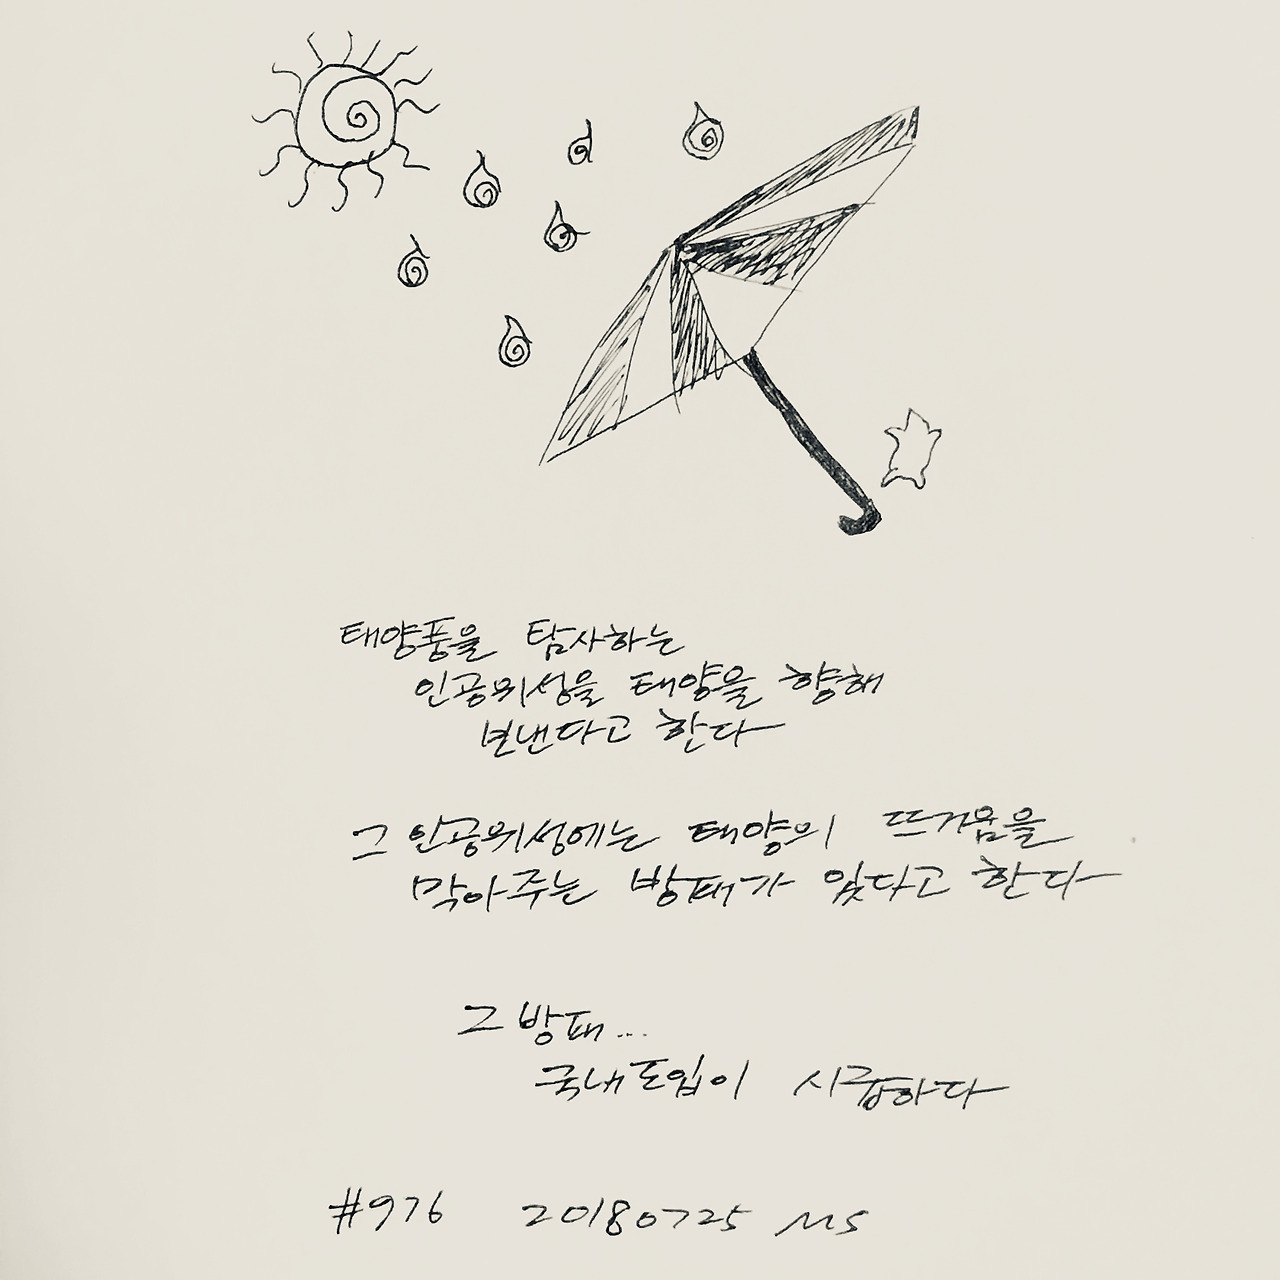 태양풍을 탐사하는
인공위성을 태양을 향해
보낸다고 한다
그 인공위성에는 태양의 뜨거움을
막아주는 방패가 있다고 한다
그 방패...
국내도입이 시급하다
#976 20180725 MS